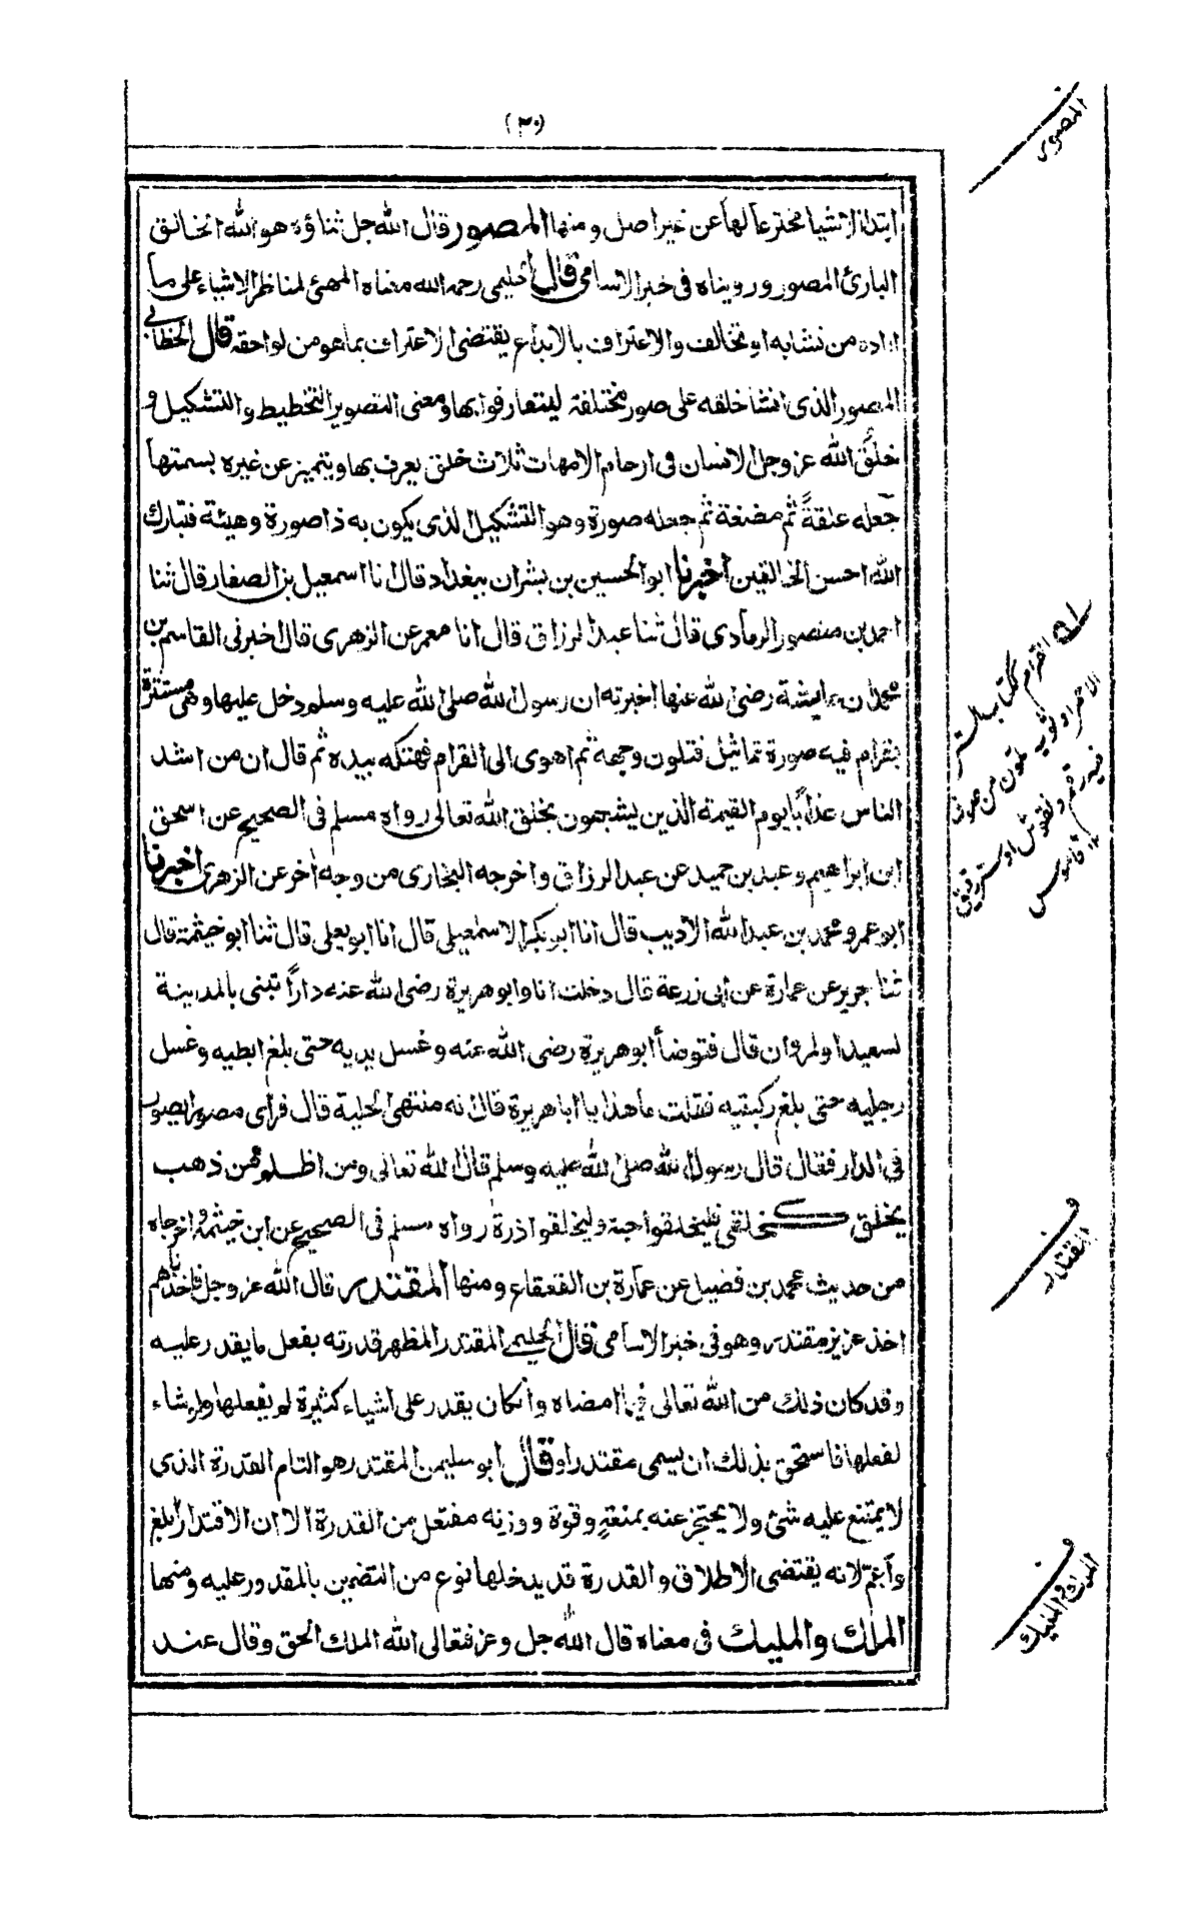 (٣٠)
المصور
ابتدا الاشيا مخترعا لها عن غير اصل ومنها المصور قال الله جل ثناؤه هو الله الخالق
البارئ المصور ورويناه في خبر الاسامي قال الحليمي رحمه الله معناه المهئ لمناظر الاشياء على ما
اراده من تشابه او تخالف والاعتراف بالابداع يقتضى الاعتراف بما هو من لواحقه قال الخطابي
المصور الذى انشا خلقه على صور مختلفة ليتعارفوا بها ومعنى التصوير التخطيط والتشكيل و
خلق الله عز وجل الانسان في ارحام الامهات ثلاث خلق يعرف بها ويتميز عن غيره بسمتها
جعله علقةً ثم مضغة ثم جعله صورة وهو التشكيل الذى يكون به ذا صورة وهيئة فتبارك
الله احسن الخالقين اخبرنا ابو الحسين بن بشران ببغداد قال انا اسمعيل بن الصفار قال ثنا
احمد بن منصور الرمادي قال ثنا عبد الرزاق قال انا معمر عن الزهرى قال اخبرنى القاسم بن
محمد ان عايشة رضى الله عنها اخبرته ان رسول الله صلى الله عليه وسلم دخل عليها وهى مستترة
بقرام فيه صورة تماثيل فتلون وجهه ثم اهوى الى القرام فهتكه بيده ثم قال ان من اشد
الناس عذابا يوم القيمة الذين يشبهون بخلق الله تعالى رواه مسلم فى الصحيح عن اسحق
ابن ابراهيم وعبد بن حميد عن عبد الرزاق واخرجه البخارى من وجه اٰخر عن الزهرى اخبرنا
ابو عمرو محمد بن عبد الله الاديب قال انا ابو بكر الاسمعيلى قال انا ابو يعلى قال ثنا ابو خيثمة قال
ثنا جرير عن عمارة عن ابى زرعة قال دخلت انا وابو هريرة رضى الله عنه داراً تبنى بالمدينة
لسعيد او لمروان قال فتوضأ ابو هريرة رضى الله عنه وغسل يديه حتى بلغ ابطيه وغسل
رجليه حتى بلغ ركبتيه فقلت ما هذا يا ابا هريرة قال انه منتهى الحلية قال فراى مصورا يصور
فى الدار فقال قال رسول الله صلى الله عليه وسلم قال الله تعالى ومن اظلم ممن ذهب
يخلق كخلقى فليخلقوا حبة وليخلقوا ذرة رواه مسلم فى الصحيح عن ابن خيثمة واخرجاه
من حديث محمد بن فضيل عن عمارة بن القعقاع ومنها المقتدر قال الله عز وجل فاخذناهم
اخذ عزيز مقتدر وهو فى خبر الاسامى قال الحليمى المقتدر المظهر قدرته بفعل ما يقدر عليه
وقد كان ذلك من الله تعالى فيما امضاه وان كان يقدر على اشياء كثيرة لم يفعلها ولو شاء
لفعلها فاستحق بذلك ان يسمى مقتدرا وقال ابو سليمن المقتدر هو التام القدرة الذى
لا يمتنع عليه شئ ولا يحتجز عنه بمنعةٍ وقوة ووزنه مفتعل من القدرة الا ان الاقتدار ابلغ
واعم لانه يقتضى الاطلاق والقدرة قد يدخلها نوع من التضمين بالمقدور عليه ومنها
الملك والمليك فى معناه قال الله جل وعز فتعالى الله الملك الحق وقال عند
القرام ككتاب الستر
الاحمر او ثوب ملون من صوف
فيه رقم ونقوش او ستر رقيق
قاموس
المقتدر
الملك والمليك